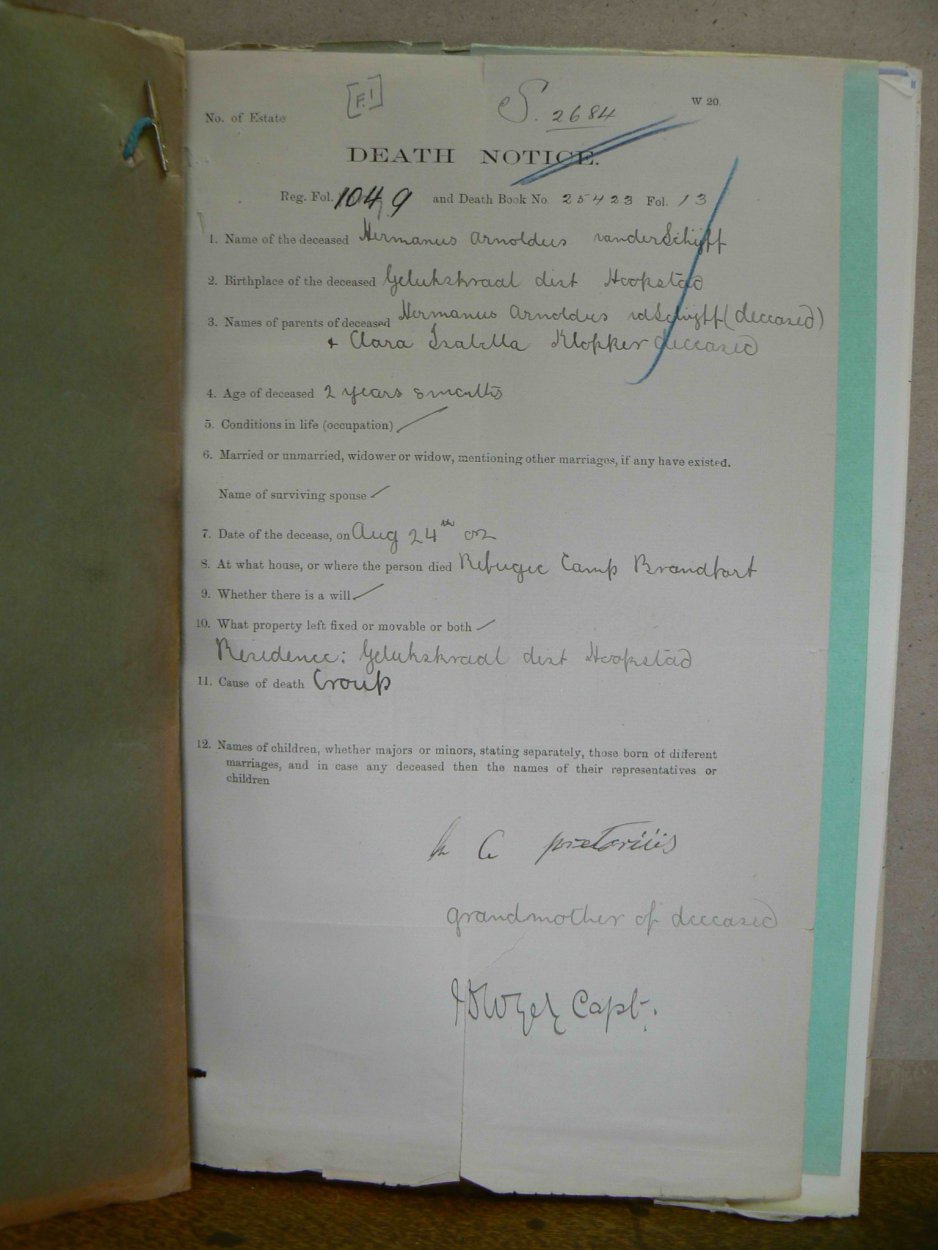 [F.1]
S. 2684
W 20.
No. of Estate
DEATH NOTICE.
Reg. Fol. 1049 and Death Book No. 25423 Fol. 13
1. Name of the deceased Hermanus Arnoldus van der Schyff
2. Birthplace of the deceased Gelukskraal dist Hoopstad
3. Names of parents of deceased Hermanus Arnoldus vd Schyff (deceased)
+ Clara Izabella Klopker deceased
4. Age of deceased 2 years 8 months
5. Conditions in life (occupation)
6. Married or unmarried, widower or widow, mentioning other marriages, if any have existed.
Name of surviving spouse
7. Date of the decease, on Aug 24th 02
8. At what house, or where the person died Refugee Camp Brandfort
9. Whether there is a will
10. What property left fixed or movable or both
Residence: Gelukskraal dist Hoopstad
11. Cause of death Croup
12. Names of children, whether majors or minors, stating separately, those born of different
marriages, and in case any deceased then the names of their representatives or
children
C pretoriüs
grandmother of deceased
Capt.